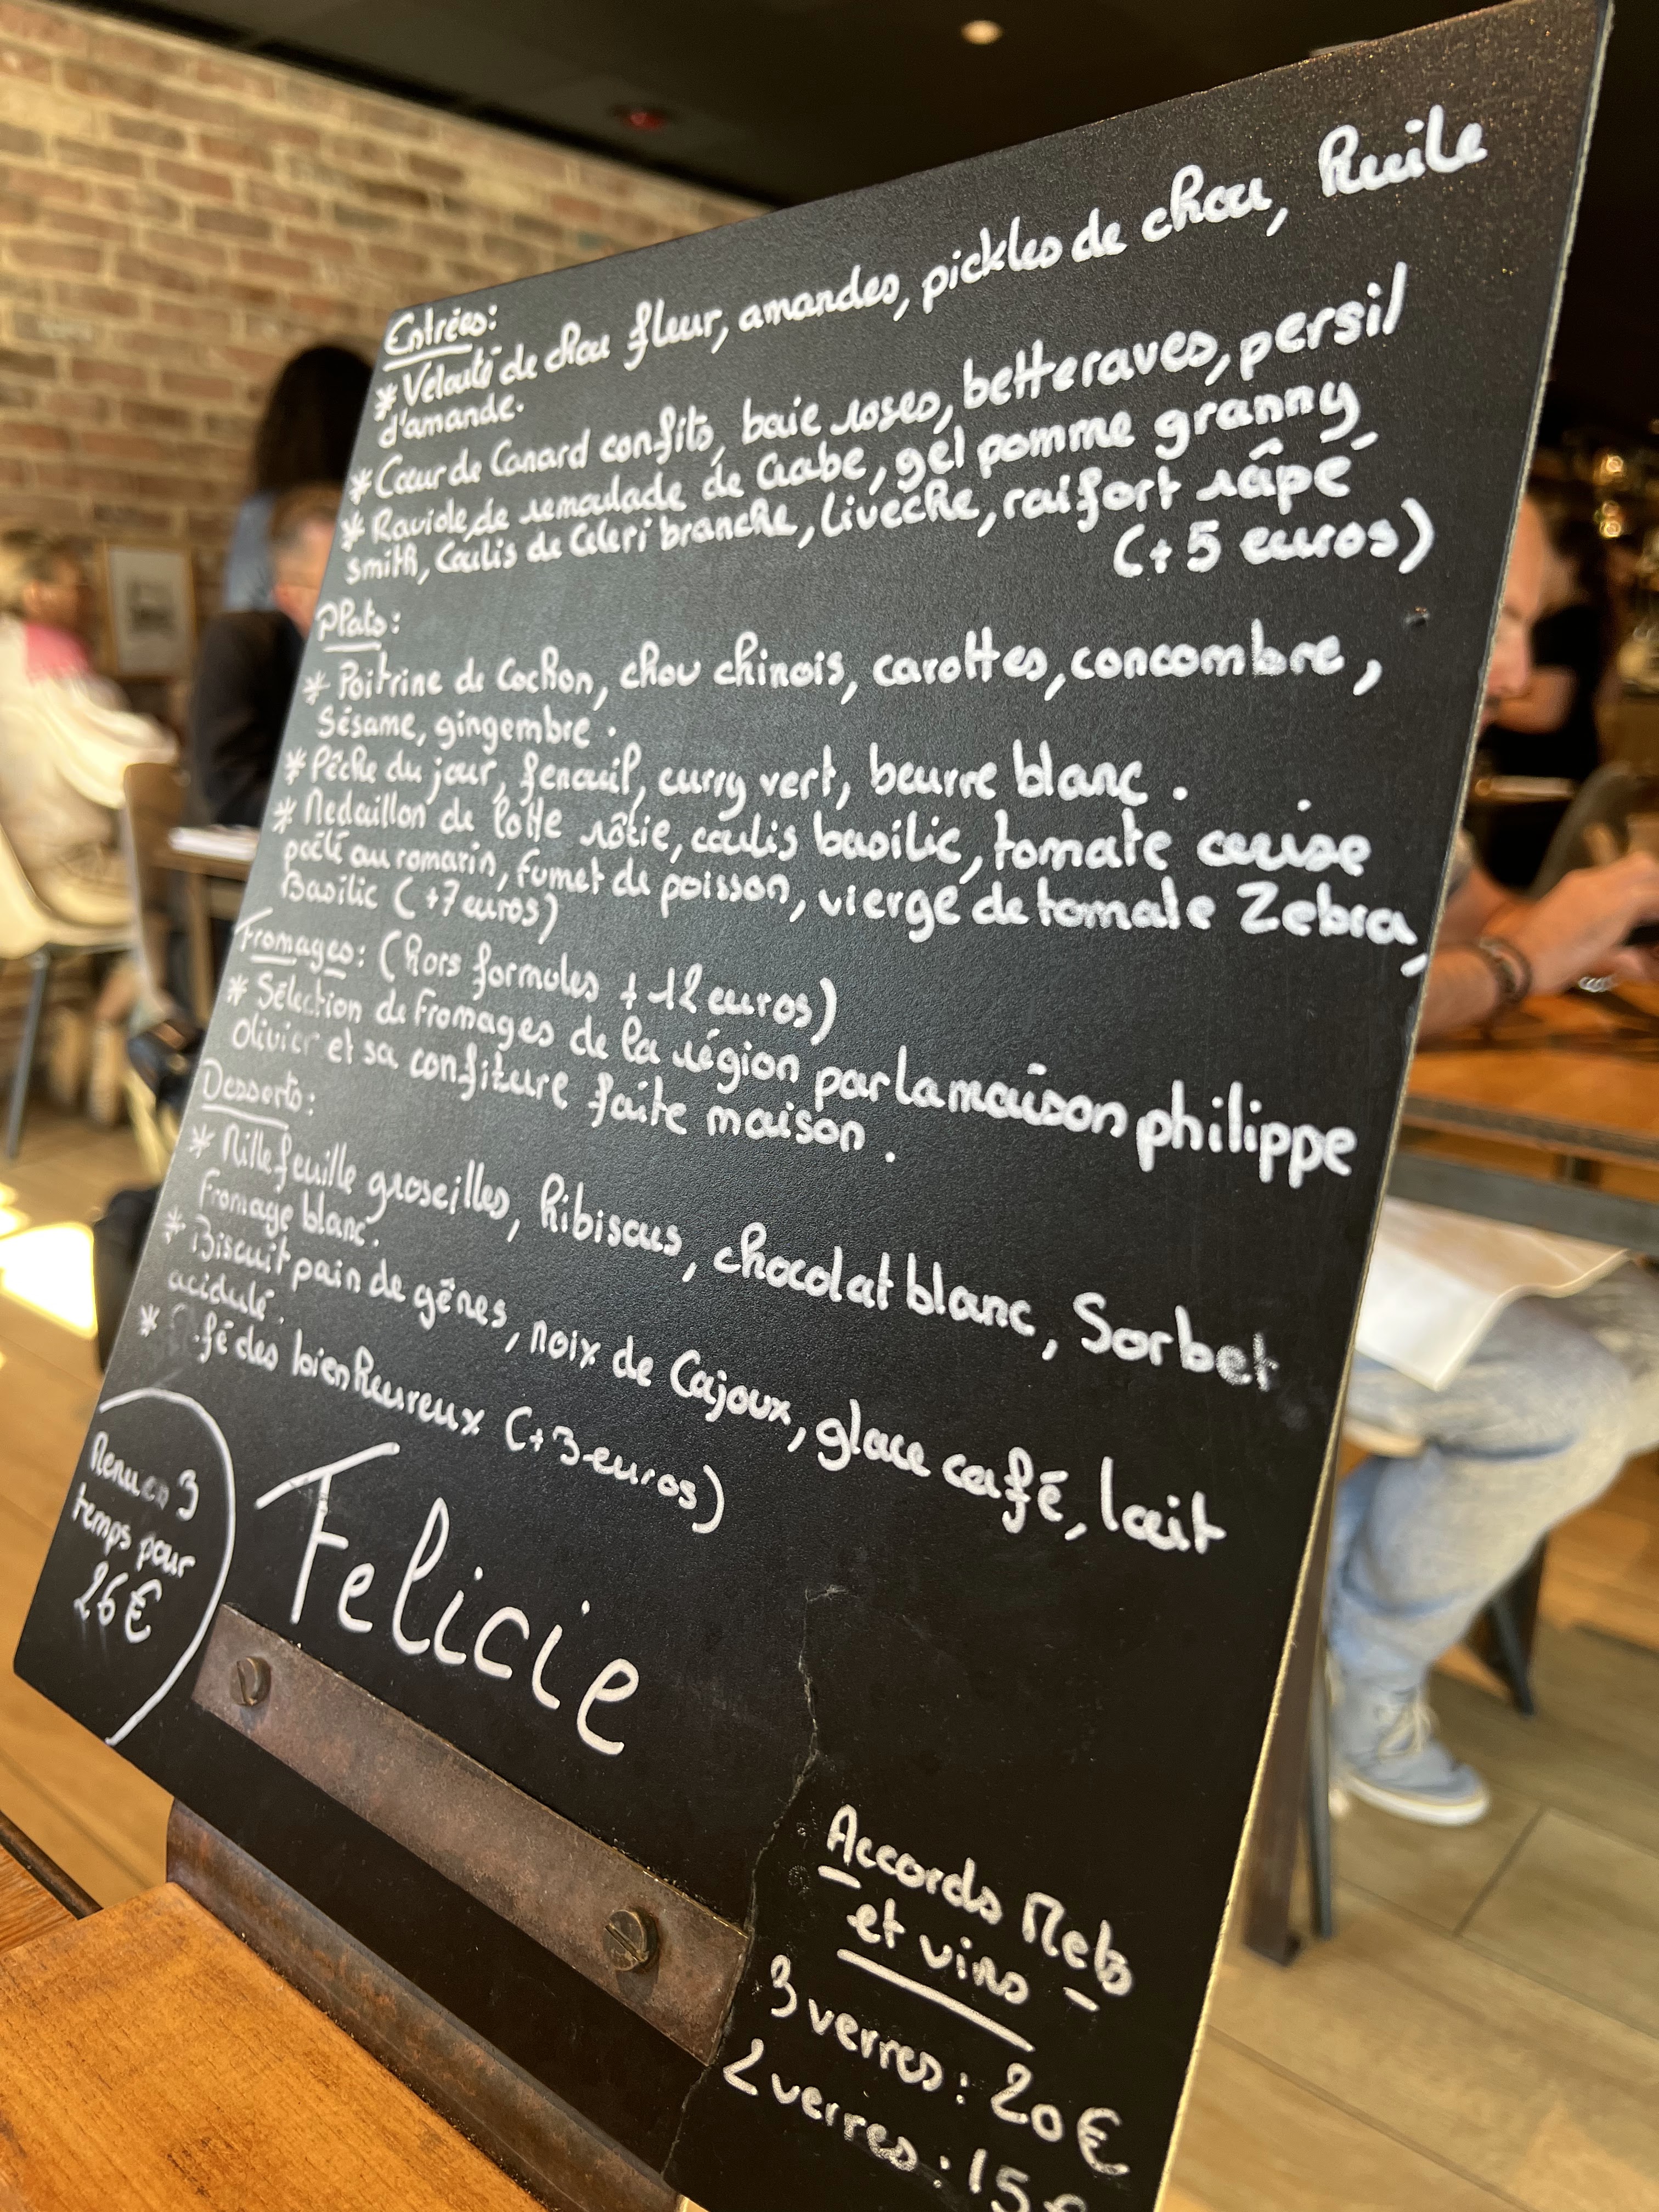 Entrées:
* Velouté de chou fleur, amandes, pickles de chou, huile
d'amande.
* Cœur de Canard confits, baie roses, betteraves, persil
* Raviole de remoulade de Crabe, gel pomme granny
smith, Coulis de Céleri branche, livèche, raifort râpé
(+5 euros)
Plats:
* Poitrine de Cochon, chou chinois, carottes, concombre,
Sésame, gingembre.
* Pêche du jour, fenouil, curry vert, beurre blanc.
* Medaillon de lotte rôtie, coulis basilic, tomate cerise
poêlé au romarin, fumet de poisson, vierge de tomate Zebra,
Basilic (+7 euros)
Fromages: (hors formules +12 euros)
* Sélection de fromages de la région par la maison philippe
Olivier et sa confiture faite maison.
Desserts:
* Millefeuille groseilles, hibiscus, chocolat blanc, Sorbet
fromage blanc.
* Biscuit pain de gênes, noix de Cajoux, glace café, lait
acidulé.
* Café des bienheureux (+3 euros)
Menu en 3
temps pour
26€
Felicie
Accords Mets
et vins
3 verres: 20€
2 verres: 15€